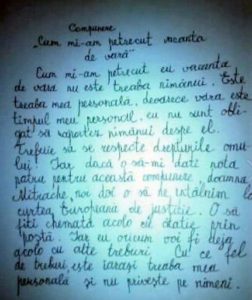 Compunere
„Cum mi-am petrecut vacanta
de vară"
Cum mi-am petrecut eu vacanta
de vara nu este treaba nimănui. Este
treaba mea personală, deoarece vara este
timpul meu personal, eu nu sunt obli-
gat să raportez nimănui despre el.
Trebuie să se respecte drepturile omu-
lui! Iar dacă o să-mi dati nota
patru pentru această compunere, doamna
Mitrache, noi doi o să ne întâlnim la
curtea Europeana de justitie. O să
fiti chemată acolo cu citatie prin
postă. Iar eu oricum voi fi deja
acolo cu alte treburi. Cu ce fel
de treburi, este iarasi treaba mea
personală si nu priveste pe nimeni.